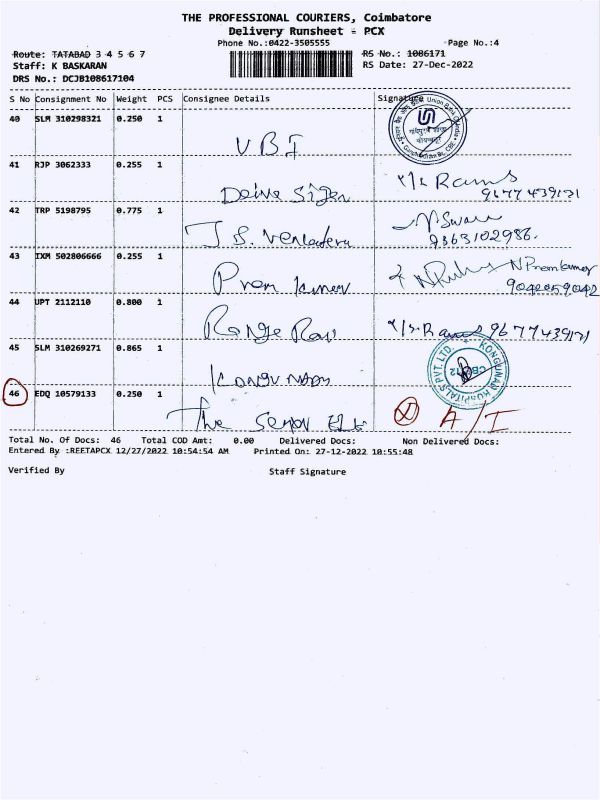 THE PROFESSIONAL COURIERS, Coimbatore
Delivery Runsheet - PCX
Phone No.:0422-3505555 Page No.:4
Route: TATABAD 3 4 5 6 7 RS No.: 1086171
Staff: K BASKARAN RS Date: 27-Dec-2022
DRS No.: DCJB108617104
S No Consignment No Weight PCS Consignee Details Signature
40 SLM 310298321 0.250 1
UBI
41 RJP 3062333 0.255 1
Rams
9677439171
42 TRP 5198795 0.775 1
9363102986.
43 IXM 502806666 0.255 1
Prem Kumar
9042059042
44 UPT 2112110 0.800 1
Rams 9677439171
45 SLM 310269271 0.865 1
KONGUNAD HOSPITALS PVT. LTD.
46 EDQ 10579133 0.250 1
The
A/I
Total No. Of Docs: 46 Total COD Amt: 0.00 Delivered Docs: Non Delivered Docs:
Entered By :REETAPCX 12/27/2022 10:54:54 AM Printed On: 27-12-2022 10:55:48
Verified By Staff Signature